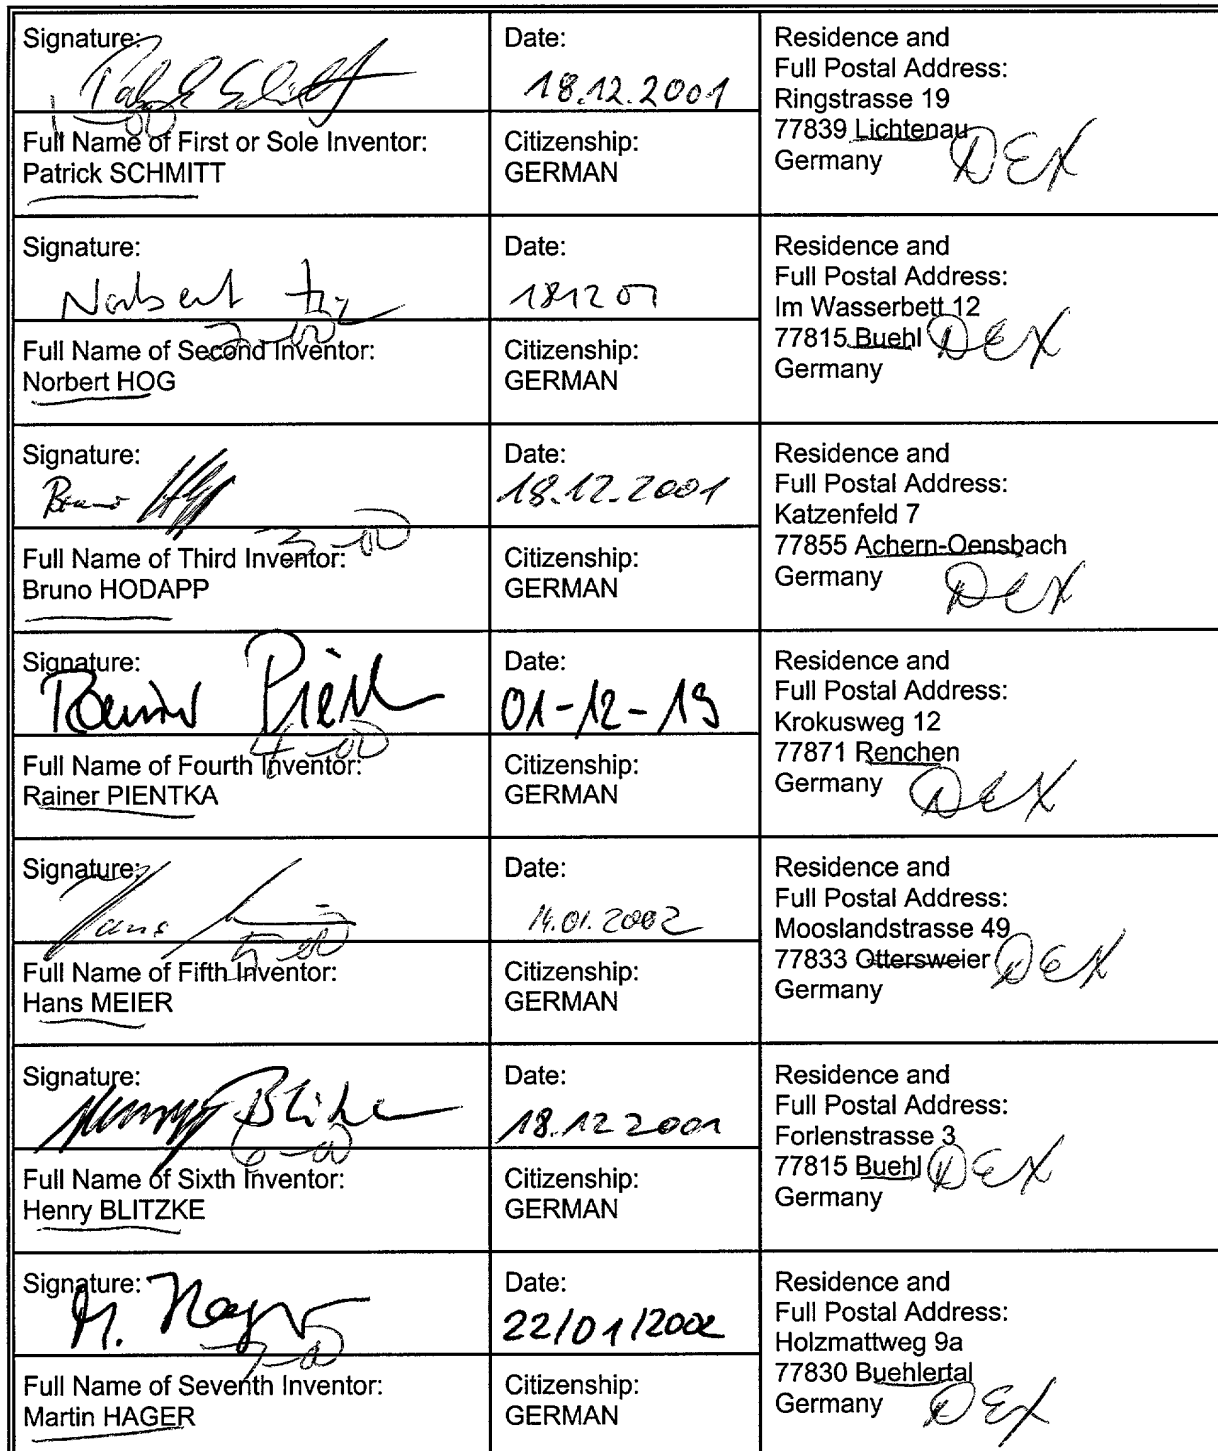 Signature:
Date:
18.12.2001
Residence and
Full Postal Address:
Ringstrasse 19
77839 Lichtenau
Germany
DEX
1-00
Full Name of First or Sole Inventor:
Patrick SCHMITT
Citizenship:
GERMAN
Signature:
Norbert
Date:
181201
Residence and
Full Postal Address:
Im Wasserbett 12
77815 Buehl DEX
Germany
2-00
Full Name of Second Inventor:
Norbert HOG
Citizenship:
GERMAN
Signature:
Bruno
Date:
18.12.2001
Residence and
Full Postal Address:
Katzenfeld 7
77855 Achern-Oensbach
Germany
DEX
3-00
Full Name of Third Inventor:
Bruno HODAPP
Citizenship:
GERMAN
Signature:
Date:
01-12-19
Residence and
Full Postal Address:
Krokusweg 12
77871 Renchen
Germany
DEX
4-00
Full Name of Fourth Inventor:
Rainer PIENTKA
Citizenship:
GERMAN
Signature:
Hans
Date:
14.01.2002
Residence and
Full Postal Address:
Mooslandstrasse 49
77833 Ottersweier DEX
Germany
5-00
Full Name of Fifth Inventor:
Hans MEIER
Citizenship:
GERMAN
Signature:
Date:
18.12 2001
Residence and
Full Postal Address:
Forlenstrasse 3
77815 Buehl DEX
Germany
6-00
Full Name of Sixth Inventor:
Henry BLITZKE
Citizenship:
GERMAN
Signature:
M. Hager
Date:
22/01/2002
Residence and
Full Postal Address:
Holzmattweg 9a
77830 Buehlertal
Germany
DEX
7-00
Full Name of Seventh Inventor:
Martin HAGER
Citizenship:
GERMAN